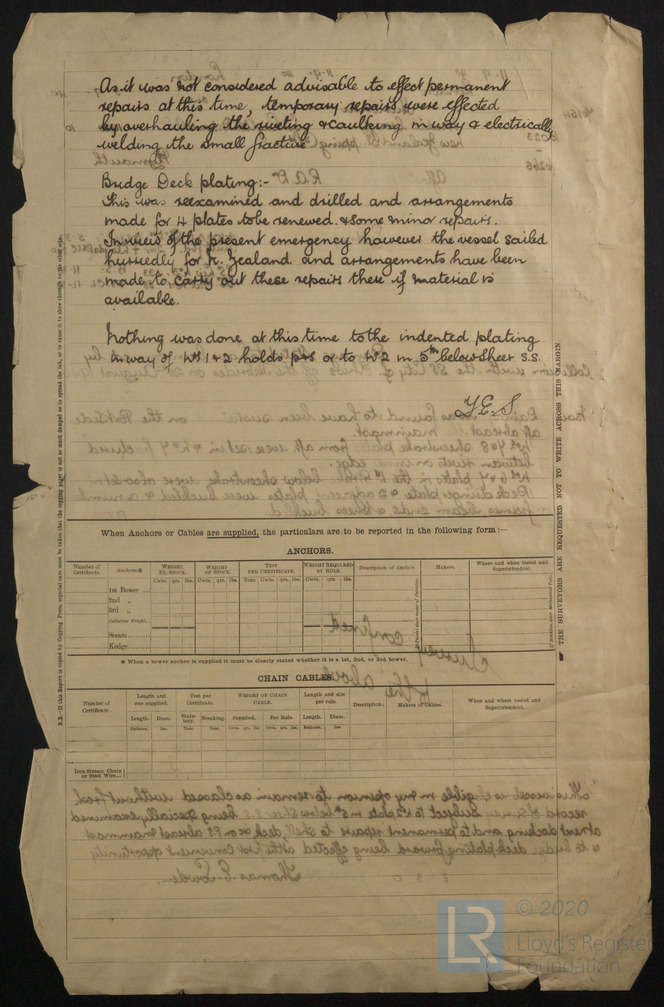 As it was not considered advisable to effect permanent
repairs at this time, temporary repairs were effected
by overhauling the riveting & caulking in way & electrically
welding the small fracture
Bridge Deck plating:-
This was reexamined and drilled and arrangements
made for 4 plates to be renewed & some minor repairs.
In view of the present emergency however the vessel sailed
hurriedly for N. Zealand and arrangements have been
made to carry out these repairs there if material is
available.
Nothing was done at this time to the indented plating
in way of Nos 1 & 2 holds p&s or to No 2 in 5th below Sheer S.S.
T.E.S
When Anchors or Cables are supplied, the particulars are to be reported in the following form:—
ANCHORS.
Number of Certificate. Anchors* WEIGHT, EX. STOCK. WEIGHT OF STOCK. TEST PER CERTIFICATE. WEIGHT REQUIRED BY RULE. Description of Anchor. Makers. Where and when tested and Superintendent.
Cwts. qrs. lbs. Cwts. qrs. lbs. Tons Cwts. qrs. lbs. Cwts. qrs. lbs.
1st Bower ...
2nd „
3rd „
Collective Weight.
Stream
Kedge
* When a bower anchor is supplied it must be clearly stated whether it is a 1st, 2nd, or 3rd bower.
CHAIN CABLES.
Number of Certificate. Length and size supplied. Test per Certificate. WEIGHT OF CHAIN CABLE. Length and size per rule. Description. Makers of Cables. Where and when tested and Superintendent.
Length. Diam. Statutory. Breaking. Supplied. Per Rule. Length. Diam.
Fathoms. Ins. Tons. Tons. Cwts. qrs. lbs. Cwts. qrs. lbs. Fathoms. Ins.
Iron Stream Chain or Steel Wire...
THE SURVEYORS ARE REQUESTED NOT TO WRITE ACROSS THIS MARGIN.
LR
© 2020
Lloyd's Register
Foundation